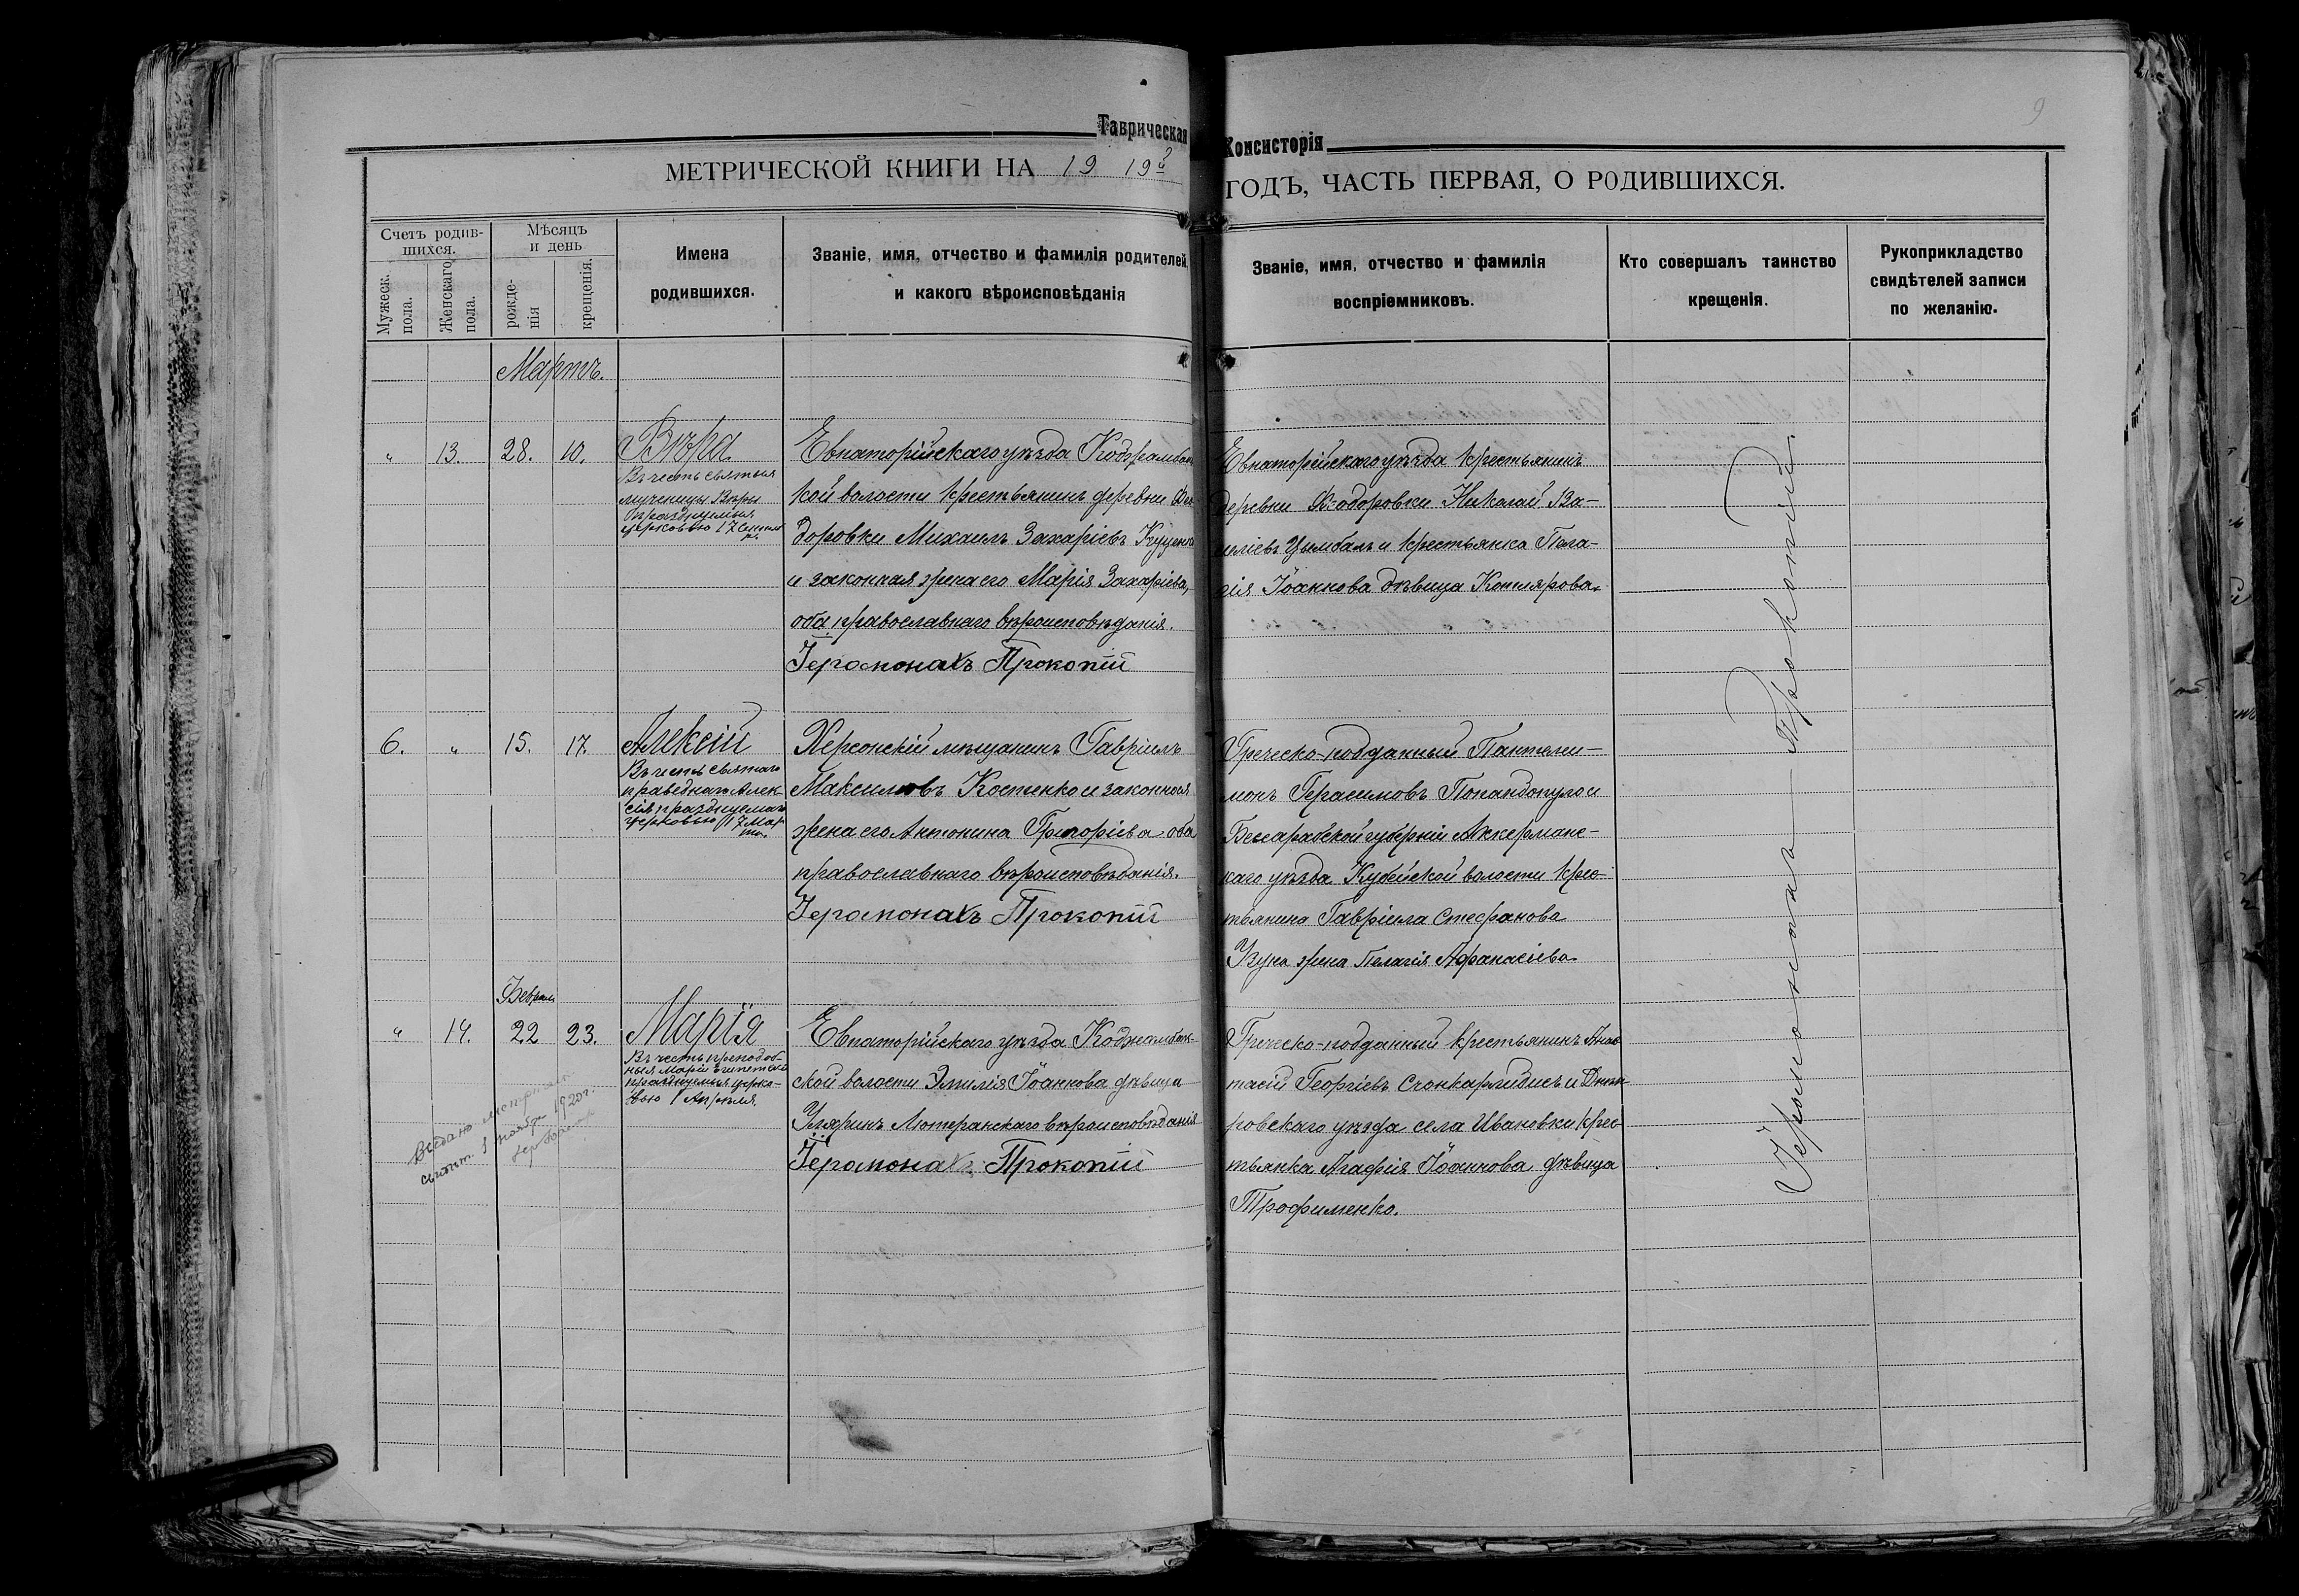 9
Таврическая Консисторія
МЕТРИЧЕСКОЙ КНИГИ НА 1919й ГОДЪ, ЧАСТЬ ПЕРВАЯ, О РОДИВШИХСЯ.
Счетъ родив-
шихся.
Мужеск. пола.
Женскаго пола.
Мѣсяцъ
и день
рожде-
нія
крещенія.
Имена
родившихся.
Званіе, имя, отчество и фамилія родителей,
и какого вѣроисповѣданія
Званіе, имя, отчество и фамилія
воспріемниковъ.
Кто совершалъ таинство
крещенія.
Рукоприкладство
свидѣтелей записи
по желанію.
Мартъ.
" 13. 28. 10.
Вѣра
Въ честь святыя
мученицы Вѣры
празднуемыя
церковью 17
Евпаторійскаго уѣзда
кой волости крестьянинъ деревни
доровки Михаилъ Захаріевъ
и законная жена его Марія Захаріева,
оба православнаго вѣроисповѣданія.
Іеромонахъ Прокопій
Евпаторійскаго уѣзда крестьянинъ
деревни Ѳеодоровки Николай Ва-
силіевъ Цымбалъ и крестьянка Пела-
гія Іоаннова дѣвица Котлярова.
6. " 15. 17
Алексій
Въ честь святаго
праведнаго Алек-
сія празднуемаго
церковью 17 Мар
та.
Херсонскій мѣщанинъ Гавріилъ
Максимовъ Костенко и законная
жена его Антонина Григоріева оба
православнаго вѣроисповѣданія.
Іеромонахъ Прокопій
Греческо-подданный Пантелеи-
монъ Герасимовъ Попандопуло и
Бессарабской губерніи Аккерманс-
каго уѣзда Кубейской волости крес-
тьянина Гавріила Стефанова
Узуна жена Пелагія Афанасіева.
Февраль
" 14. 22 23.
Марія
Въ честь преподоб-
ныя Маріи Египетской
празднуемыя церко-
вью 1 Апрѣля.
Евпаторійскаго уѣзда Коджамбак-
ской волости Эмилія Іоаннова дѣвица
Лютеранскаго вѣроисповѣданія
Іеромонахъ Прокопій
Греческо-подданный крестьянинъ Анас-
тасій Георгіевъ и Днѣп-
ровскаго уѣзда села Ивановки крес-
тьянка Агафія Іоаннова дѣвица
Трофименко.
Выдано
1920 г.
Іеромонахъ Прокопій